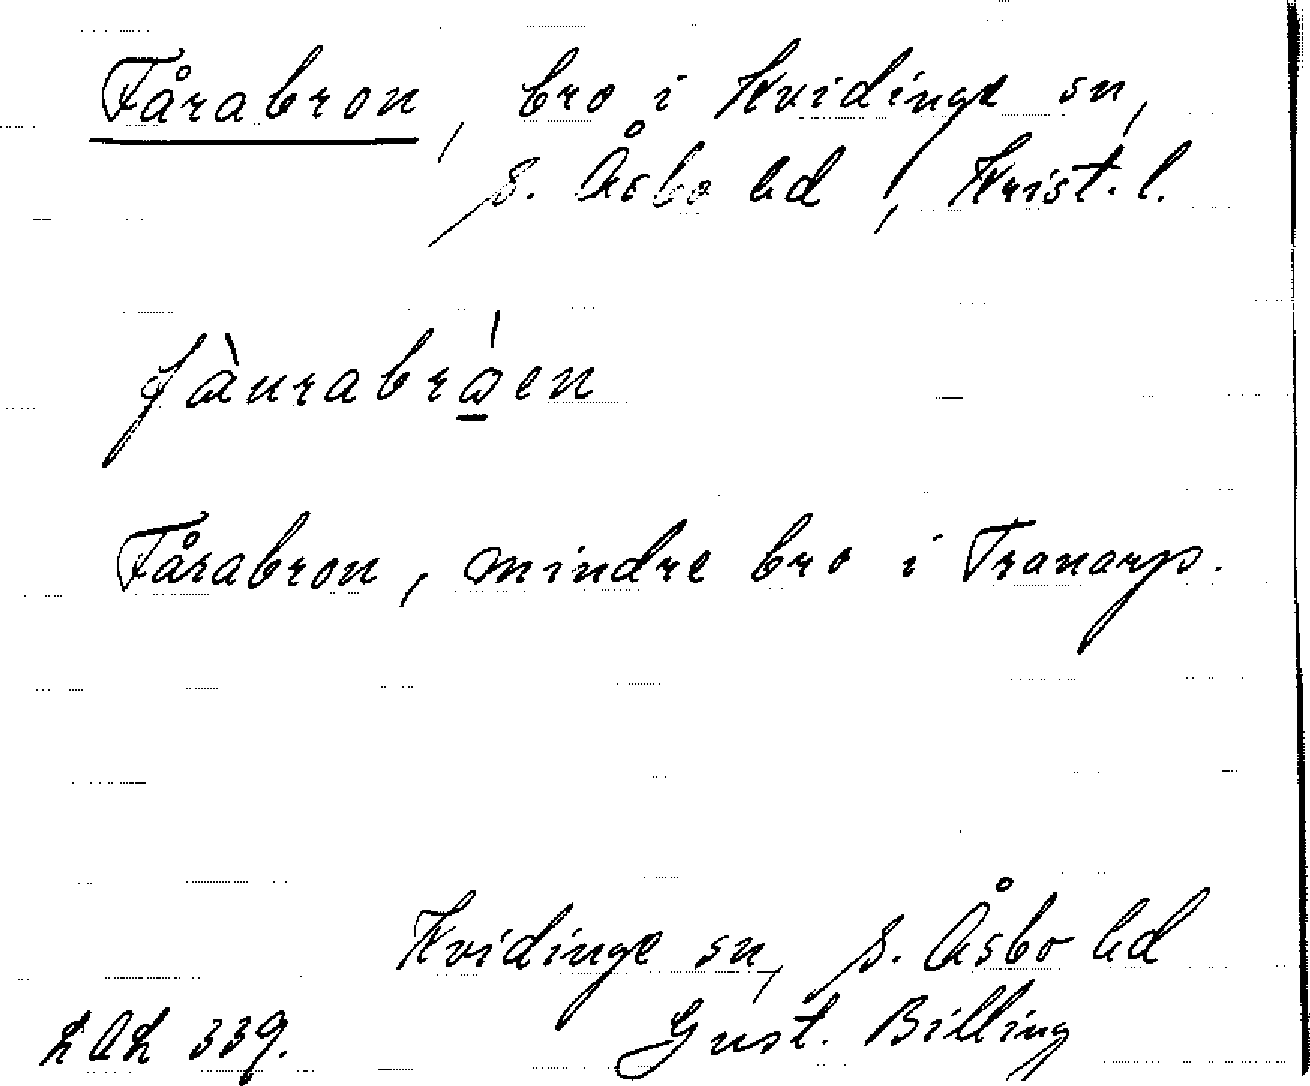 Fårabron, bro i Kvidinge sn,
S. Åsbo hd, Krist. l.
fàurabrǫ̀en
Fårabron, mindre bro i Tranarp.
Kvidinge sn, S. Åsbo hd
LAL 339. Gust. Billing